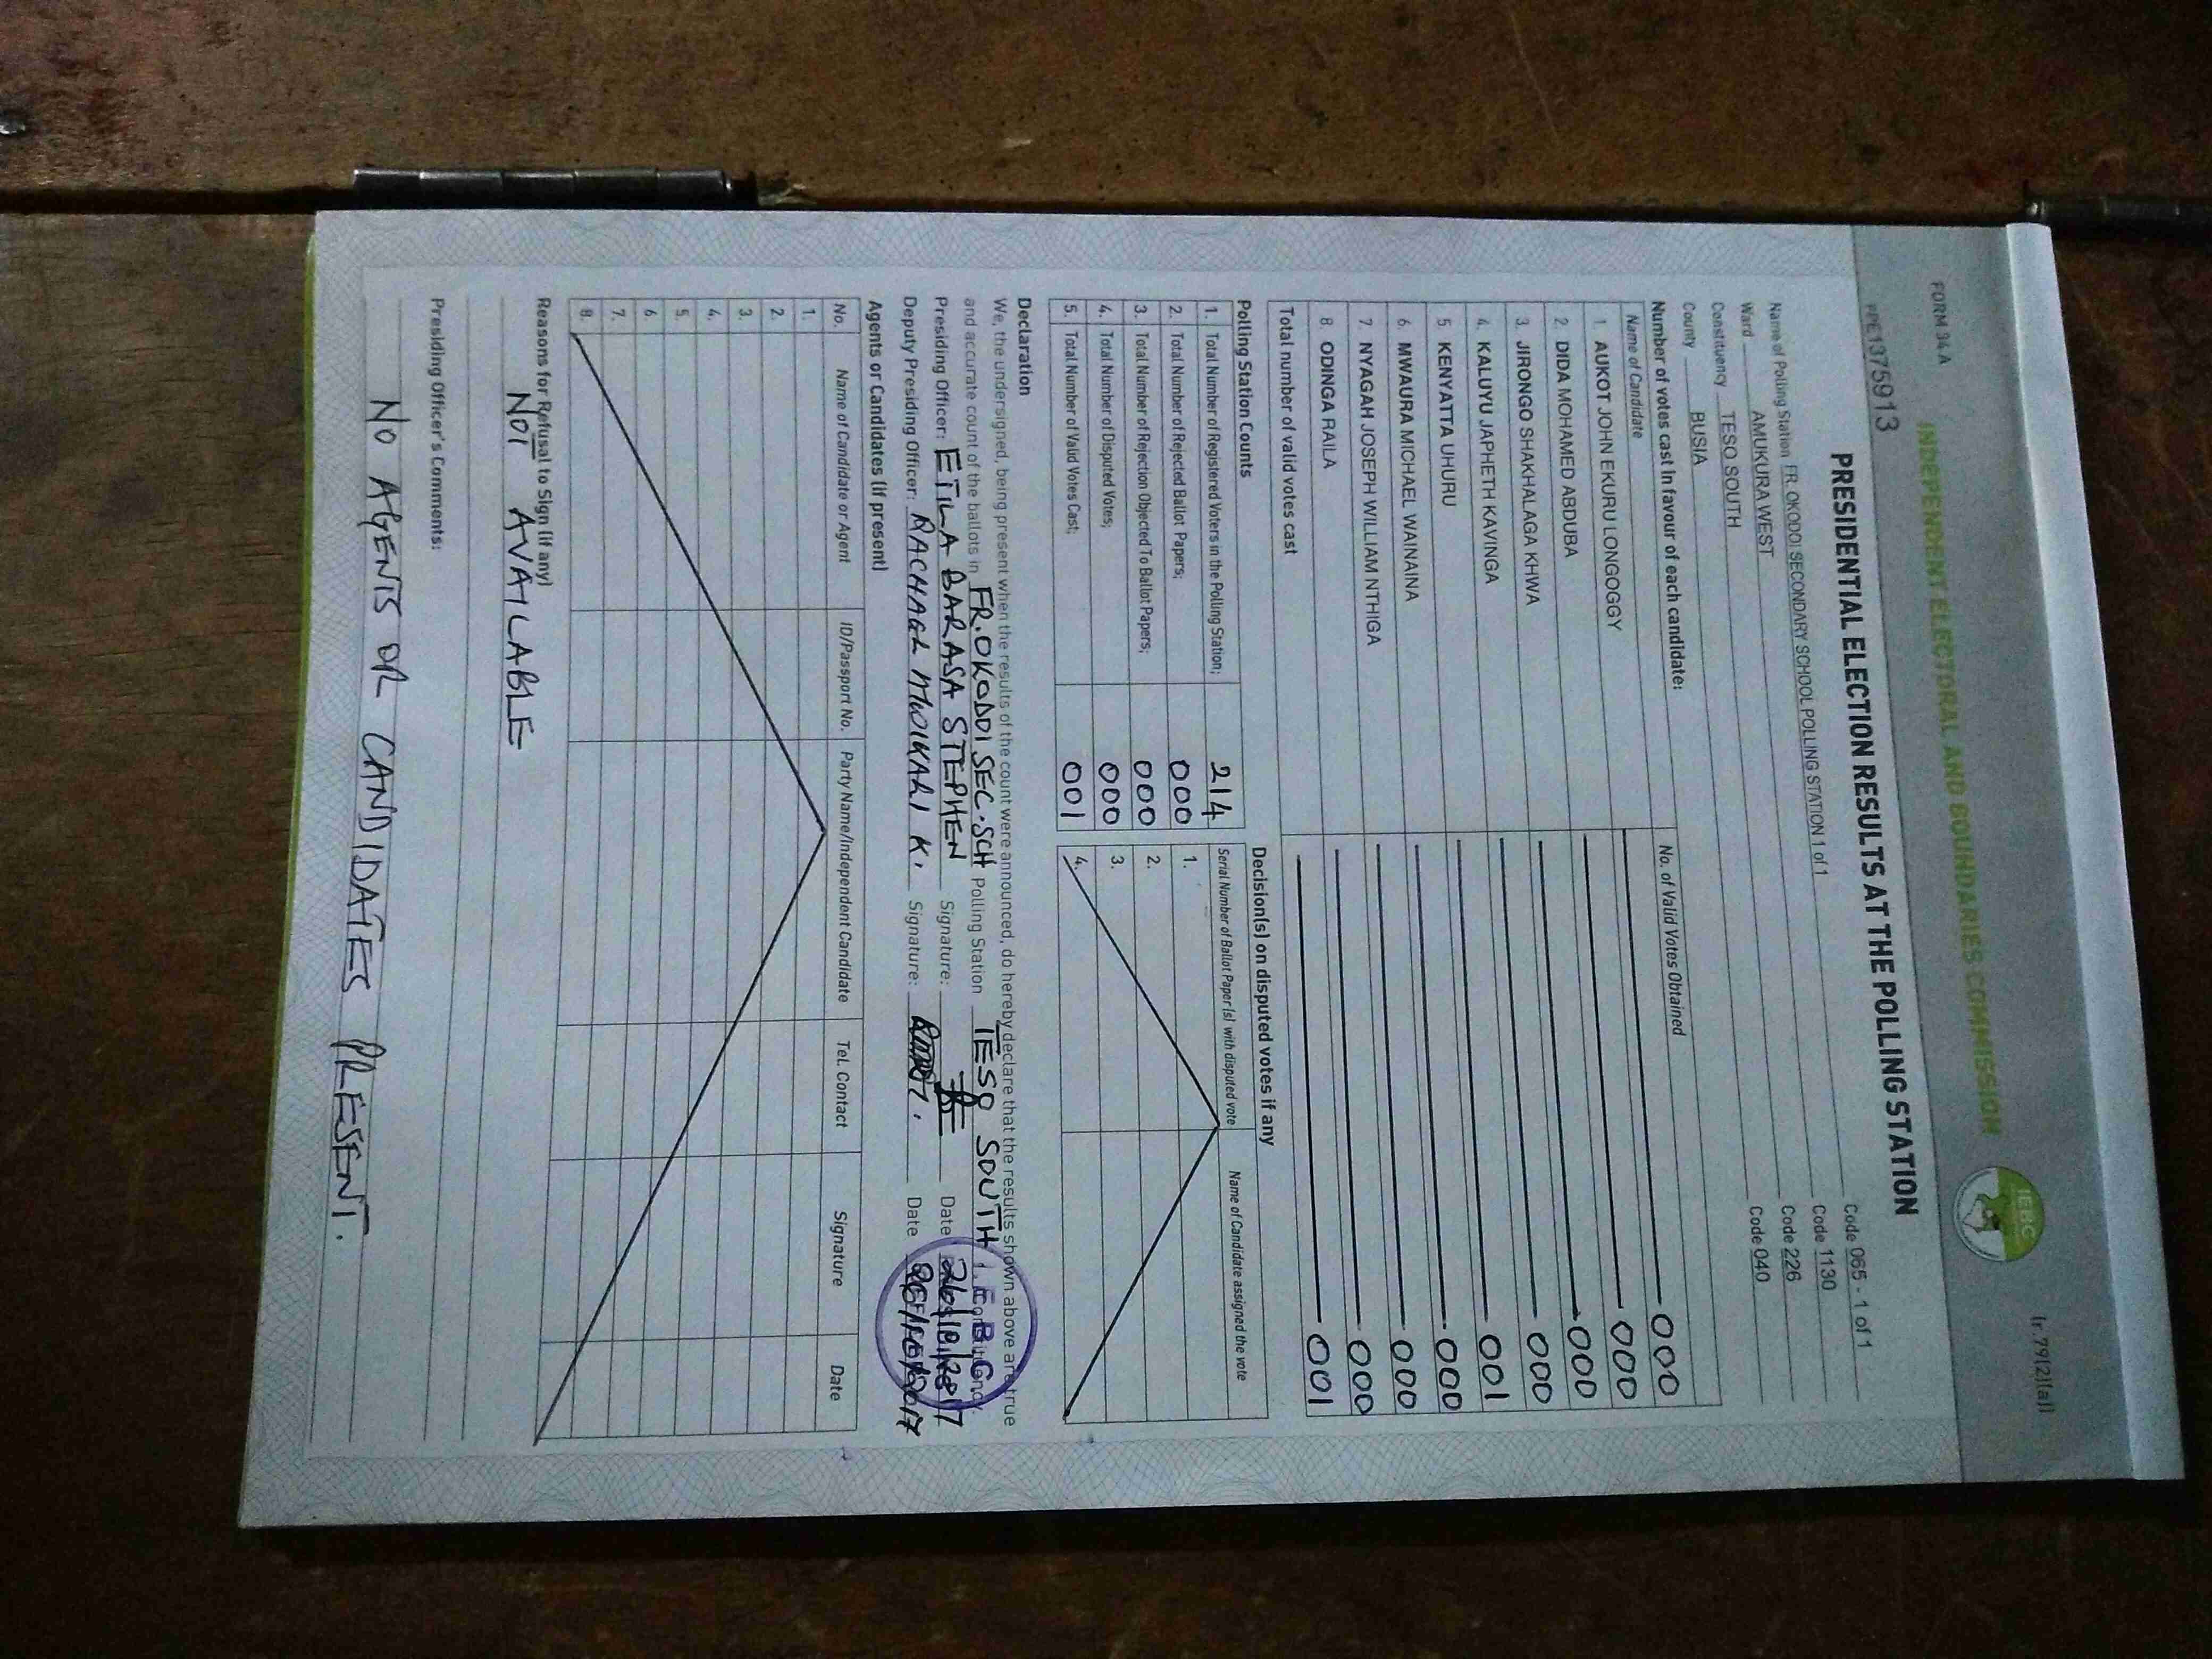 FORM 34 A
(r 79(2)(a))
INDEPENDENT ELECTORAL AND BOUNDARIES COMMISSION
IEBC
PRESIDENTIAL ELECTION RESULTS AT THE POLLING STATION
Name of Polling Station FR. OKODOI SECONDARY SCHOOL POLLING STATION 1 of 1 Code 065 - 1 of 1
Ward AMUKURA WEST Code 1130
Constituency TESO SOUTH Code 226
County BUSIA Code 040
Number of votes cast in favour of each candidate:
Name of Candidate No. of Valid Votes Obtained
1. AUKOT JOHN EKURU LONGOGGY 000
2. DIDA MOHAMED ABDUBA 000
3. JIRONGO SHAKHALAGA KHWA 000
4. KALUYU JAPHETH KAVINGA 000
5 KENYATTA UHURU 001
6 MWAURA MICHAEL WAINAINA 000
7 NYAGAH JOSEPH WILLIAM NTHIGA 000
8. ODINGA RAILA 000
Total number of valid votes cast 001
Polling Station Counts
1. Total Number of Registered Voters in the Polling Station; 214
2. Total Number of Rejected Ballot Papers; 000
3. Total Number of Rejection Objected To Ballot Papers; 000
4. Total Number of Disputed Votes; 000
5. Total Number of Valid Votes Cast; 001
Decision(s) on disputed votes if any
Serial Number of Ballot Paper (s) with disputed vote Name of Candidate assigned the vote
1.
2.
3.
4.
Declaration
We, the undersigned, being present when the results of the count were announced, do hereby declare that the results shown above are true
and accurate count of the ballots in FR. OKODOI SEC. SCH Polling Station TESO SOUTH Constituency.
Presiding Officer: ETILA BARASA STEPHEN Signature: Date 26/10/2017
Deputy Presiding Officer: K. Signature: Date
I.E.B.C
Agents or Candidates (if present)
No. Name of Candidate or Agent ID/Passport No. Party Name/Independent Candidate Tel. Contact Signature Date
1.
2.
3.
4.
5.
6.
7.
8.
Reasons for Refusal to Sign (if any)
NOT AVAILABLE
Presiding Officer's Comments:
NO AGENTS OR CANDIDATES PRESENT.